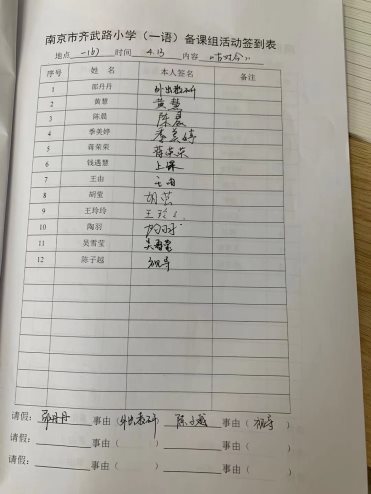 南京市齐武路小学（一语）备课组活动签到表
地点 一(5) 时间 4.13 内容 《古对今》
序号 姓 名 本人签名 备注
1 邵丹丹 外出教研
2 黄慧 黄慧
3 陈晨 陈晨
4 季美婷 季美婷
5 蒋荣荣 蒋荣荣
6 钱遇慧 上课
7 王由 王由
8 胡莹 胡莹
9 王玲玲 王玲玲
10 陶羽 陶羽
11 吴雪莹 吴雪莹
12 陈子越
请假： 邵丹丹 事由（外出教研） 陈子越 事由（ ）
请假： 事由（ ） 事由（ ）
请假： 事由（ ） 事由（ ）